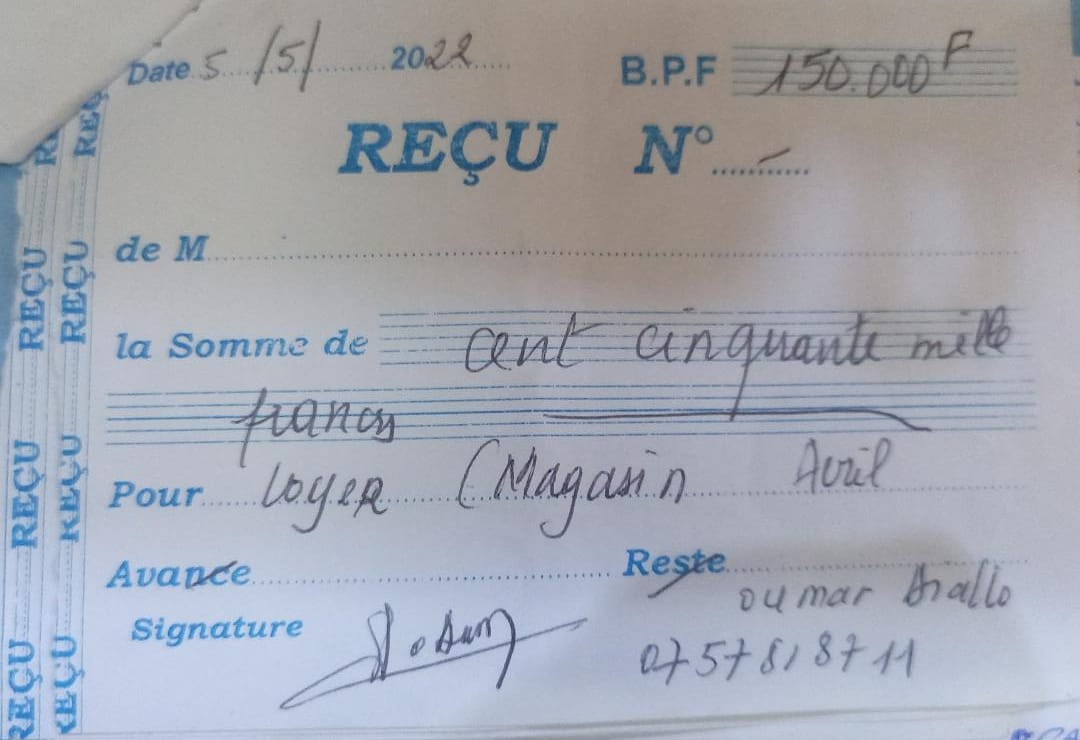 Date 5/5/ 2022 B.P.F 150.000 F
REÇU N° -
de M
la Somme de cent cinquante mille
francs
Pour Loyer (Magasin Avril
Avance Reste
oumar Diallo
Signature
0757818711
REÇU REÇU REÇU REÇU
REÇU REÇU REÇU REÇU